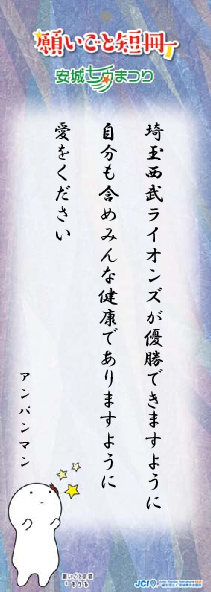 願いごと短冊
安城七夕まつり
埼玉西武ライオンズが優勝できますように
自分も含めみんな健康でありますように
愛をください
アンパンマン
願いごと短冊
JCI